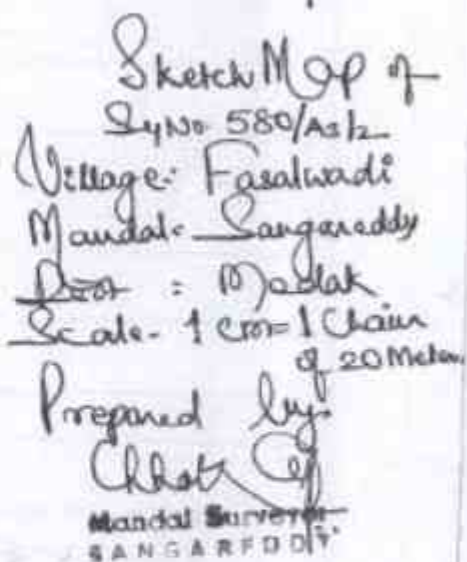 Sketch Map of
SyNo. 580/
Village: Fasalwadi
Mandal: Sangareddy
Dist : Medak
Scale - 1 cm = 1 Chain
of 20 Meters
Prepared by:
Mandal Surveyor
SANGAREDDY